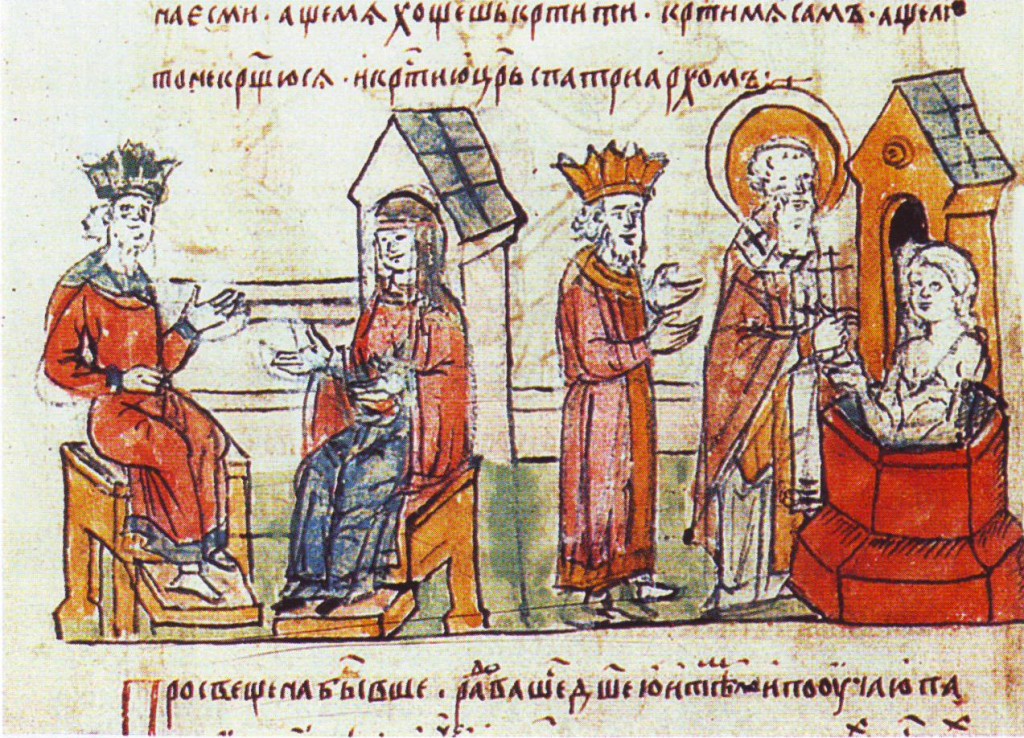 наесми · аще мѧ хощешь кр҃тити · кр҃ти мѧ самъ · аще ли
то не крщ҃юсѧ · и кр҃ти ю цр҃ь с патриархомъ :
Просвещена бы҃вше · радоваше дш҃ею и тѣломъ и пооучаю па